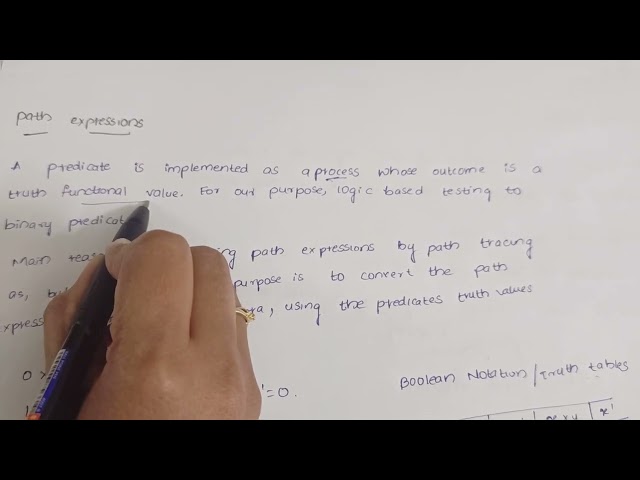 Path expressions
A predicate is implemented as a process whose outcome is a
truth functional value. For our purpose, logic based testing to
binary
Main path expressions by path tracing
as, purpose is to convert the path
using the predicates truth values
=0.
Boolean Notation/Truth tables
x'